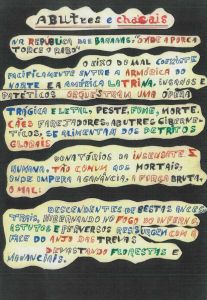 ABUTRES E CHACAIS
NA REPÚBLICA DAS BANANAS, ONDE A PORCA
TORCE O RABO.
O EIXO DO MAL COEXISTE
PACIFICAMENTE ENTRE A AMÉRICA DO
NORTE E A AMÉRICA LATRINA. INSANOS E
PATÉTICOS ORQUESTRAM UMA ÓPERA
TRÁGICA E LETAL, PESTE, FOME, MORTE.
CÃES FAREJADORES, ABUTRES CIBERNÉ-
TICOS, SE ALIMENTAM DOS DETRITOS
GLOBAIS
DONATÓRIOS DA INSENSATEZ
HUMANA, TÃO COMUM AOS MORTAIS,
ONDE IMPERA A GANÂNCIA, A FORÇA BRUTA,
O MAL.
DESCENDENTES DE BESTAS ANCES-
TRAIS, HIBERNANDO NO FOGO DO INFERNO,
ASTUTOS E PERVERSOS RESSURGEM COM A
FACE DO ANJO DAS TREVAS
DEVASTANDO FLORESTAS E
MANANCIAIS.